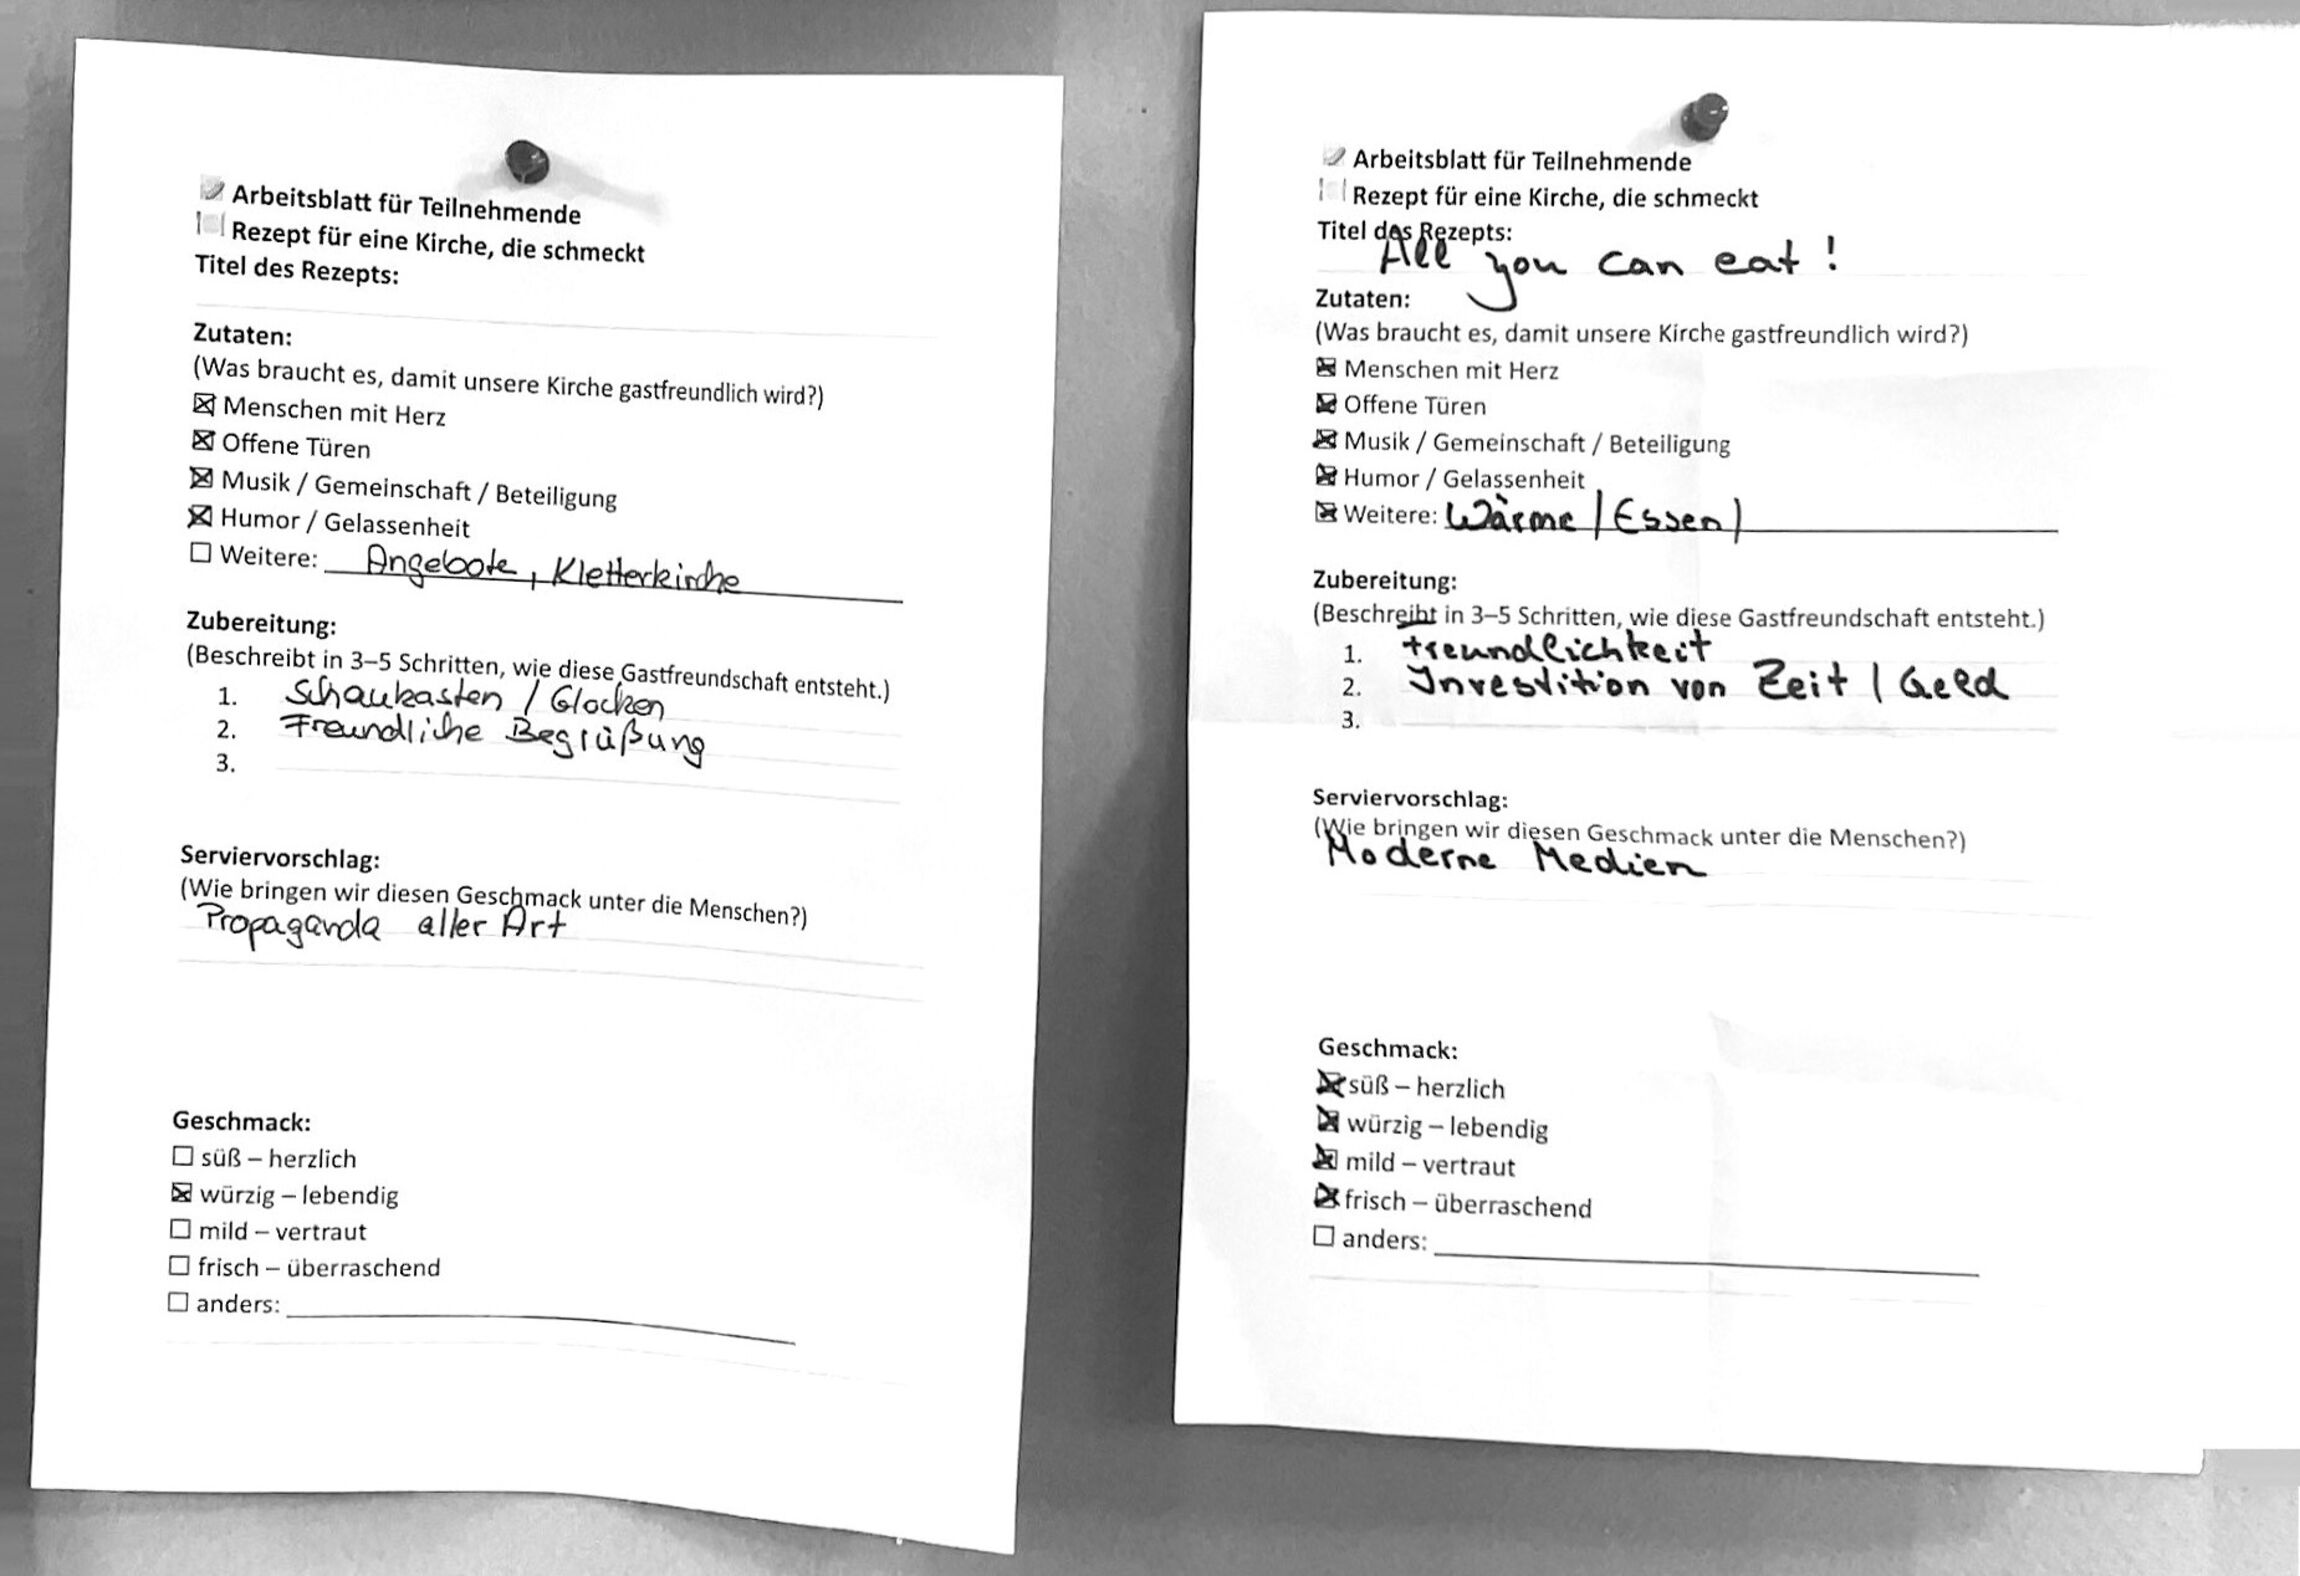 Arbeitsblatt für Teilnehmende
Rezept für eine Kirche, die schmeckt
Titel des Rezepts:
Zutaten:
(Was braucht es, damit unsere Kirche gastfreundlich wird?)
☒ Menschen mit Herz
☒ Offene Türen
☒ Musik / Gemeinschaft / Beteiligung
☒ Humor / Gelassenheit
☐ Weitere: Angebote, Kletterkirche
Zubereitung:
(Beschreibt in 3–5 Schritten, wie diese Gastfreundschaft entsteht.)
1. Schaukasten / Glocken
2. Freundliche Begrüßung
3.
Serviervorschlag:
(Wie bringen wir diesen Geschmack unter die Menschen?)
Propaganda aller Art
Geschmack:
☐ süß – herzlich
☒ würzig – lebendig
☐ mild – vertraut
☐ frisch – überraschend
☐ anders:
Arbeitsblatt für Teilnehmende
Rezept für eine Kirche, die schmeckt
Titel des Rezepts:
All you can eat!
Zutaten:
(Was braucht es, damit unsere Kirche gastfreundlich wird?)
☒ Menschen mit Herz
☒ Offene Türen
☒ Musik / Gemeinschaft / Beteiligung
☒ Humor / Gelassenheit
☒ Weitere: Wärme / Essen /
Zubereitung:
(Beschreibt in 3–5 Schritten, wie diese Gastfreundschaft entsteht.)
1. Freundlichkeit
2. Investition von Zeit / Geld
3.
Serviervorschlag:
(Wie bringen wir diesen Geschmack unter die Menschen?)
Moderne Medien
Geschmack:
☒ süß – herzlich
☒ würzig – lebendig
☒ mild – vertraut
☒ frisch – überraschend
☐ anders: